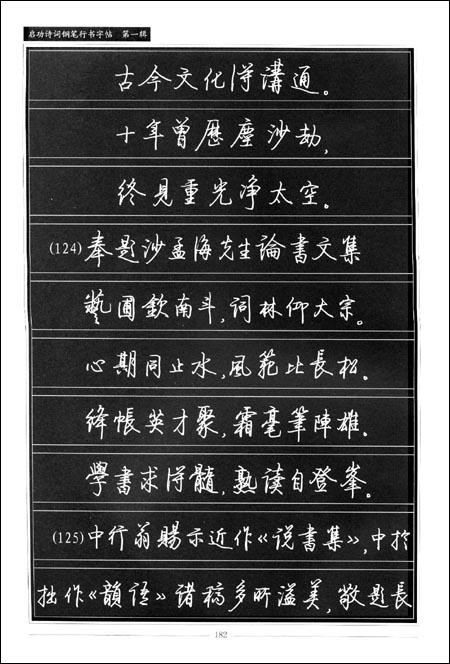 启功诗词钢笔行书字帖 第一辑
古今文化得溝通。
十年曾歷塵沙劫,
终見重光净太空。
(124)奉题沙孟海先生論書文集
藝圃欽南斗,词林仰大宗。
心期同止水,風範比長松。
绛帳英才聚,霜毫筆陣雄。
學書求得髓,熟读自登峯。
(125)中行翁賜示近作《说書集》,中於
拙作《韻语》诸稿多所溢美,敬题長
182